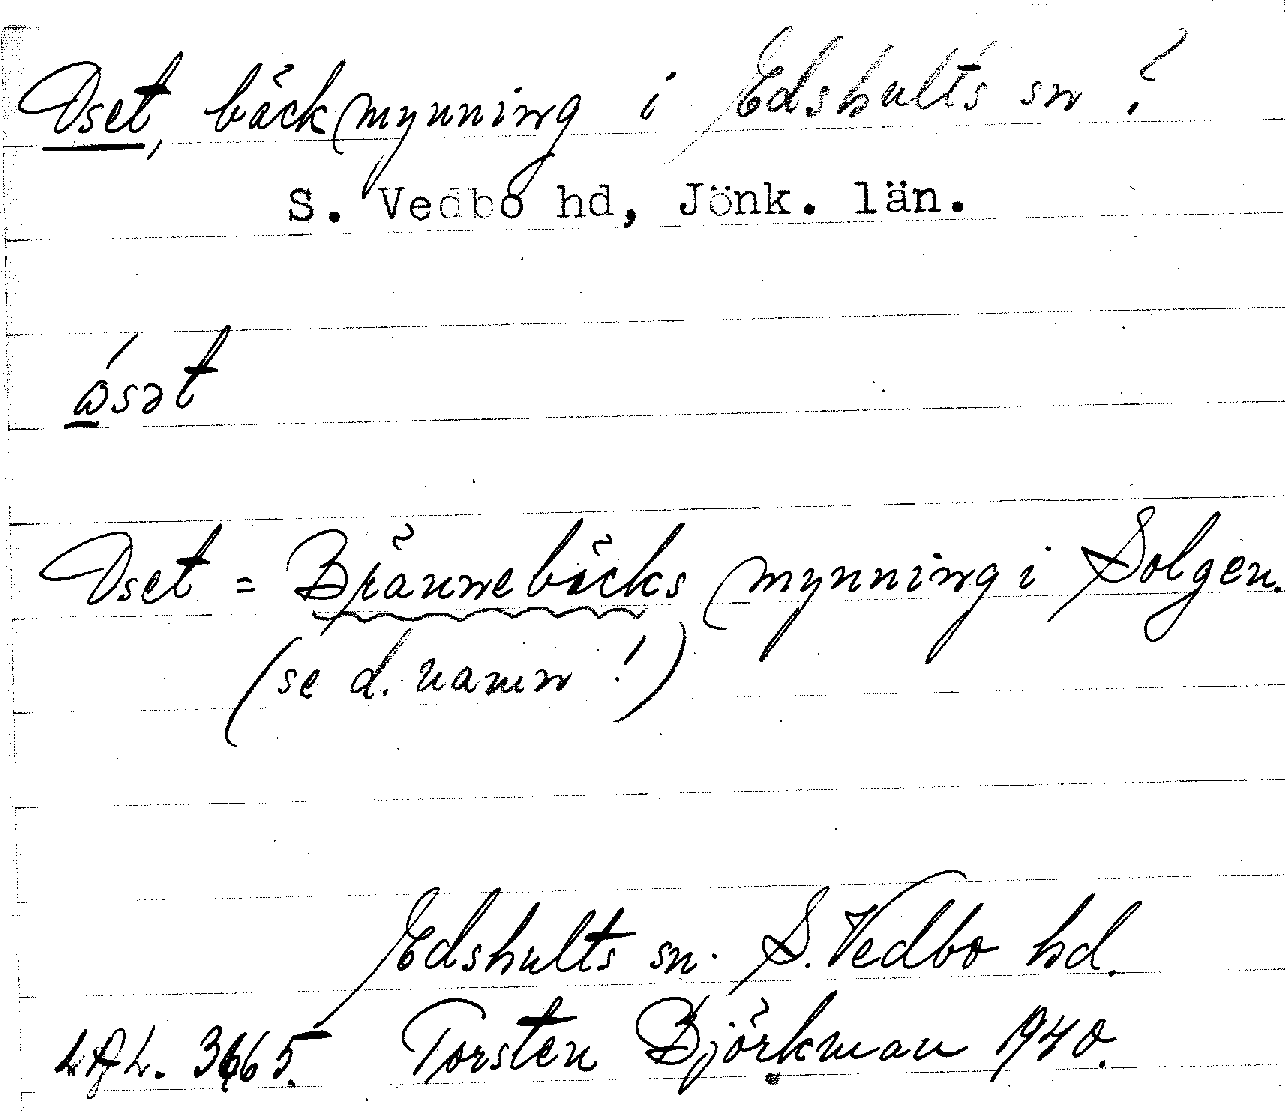 Oset, bäckmynning i Edshults sn?
S. Vedbo hd, Jönk. län.
ósət
Oset = Bränneböcks mynning i Solgen.
(se d. namn!)
Edshults sn. S. Vedbo hd.
3665. Torsten Björkman 1940.